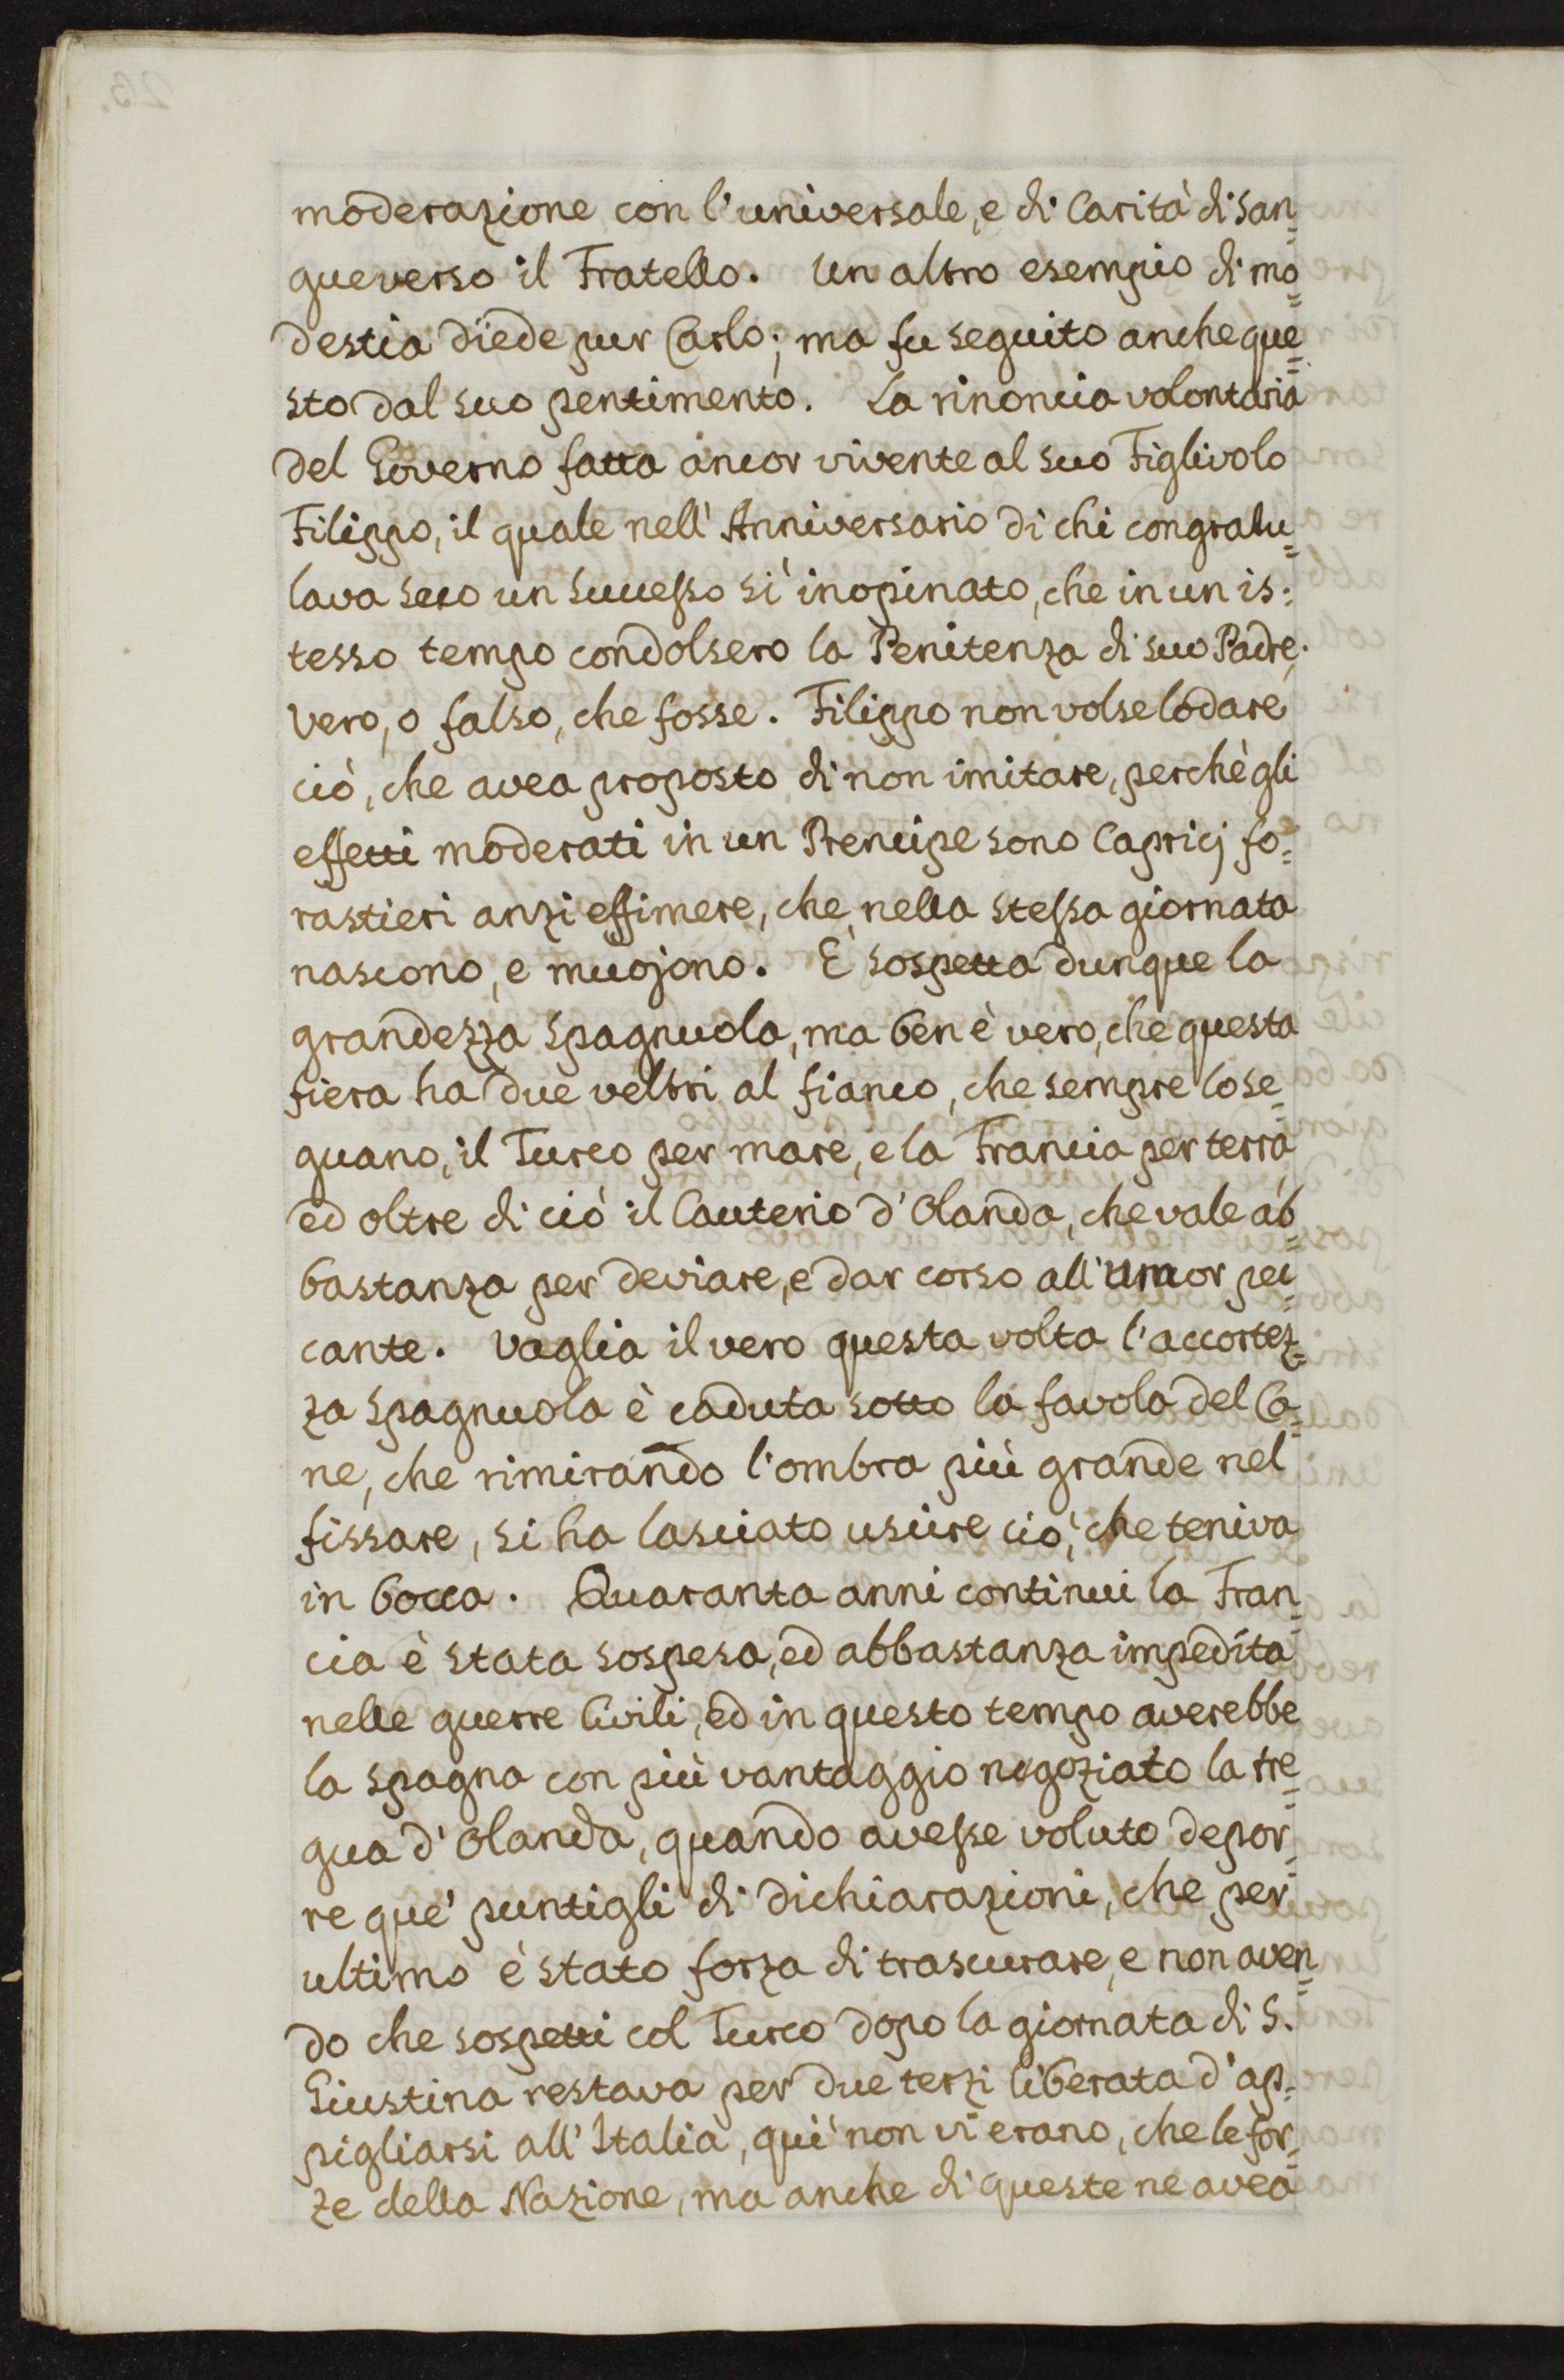 moderazione con l'universale, e di Carità di San=
gue verso il Fratello. Un altro esempio di mo=
destia diede pur Carlo; ma fu seguito anche que=
sto dal suo pentimento. La rinoncia volontaria
del Governo fatta ancor vivente al suo Figlivolo
Filippo, il quale nell'Anniversario di chi congratu=
lava seco un successo sì inopinato, che in un is=
tesso tempo condolsero la Penitenza di suo Padre.
Vero, o falso, che fosse. Filippo non volse lodare
ciò, che avea proposto di non imitare, perchè gli
effetti moderati in un Prencipe sono Capricj fo=
rastieri anzi effimere, che nella stessa giornata
nascono, e muojono. È sospetta dunque la
grandezza Spagnuola, ma ben è vero, che questa
fiera ha due veltri al fianco, che sempre lo se=
guano, il Turco per mare, e la Francia per terra
ed oltre di ciò il Cauterio d'Olanda, che vale ab=
bastanza per deviare, e dar corso all'umor pec=
cante. Vaglia il vero questa volta l'accortez=
za Spagnuola è caduta sotto la favola del Ca=
ne, che rimirando l'ombra più grande nel
fissare, si ha lasciato uscire ciò, che teniva
in bocca. Quaranta anni continui la Fran=
cia è stata sospesa, ed abbastanza impedita
nelle guerre Civili, ed in questo tempo averebbe
la Spagna con più vantaggio negoziato la tre=
gua d'Olanda, quando avesse voluto depor=
re que' puntigli di dichiarazioni, che per
ultimo è stato forza di trascurare, e non aven=
do che sospetti col Turco dopo la giornata di S.
Giustina restava per due terzi liberata d'ap=
pigliarsi all'Italia, quì non vi erano, che le for=
ze della Nazione, ma anche di queste ne avea